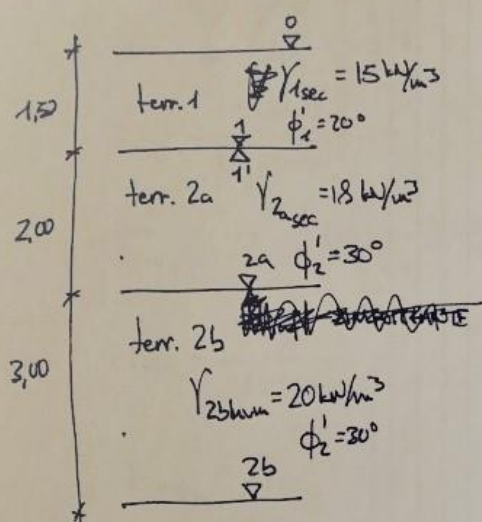 0
1,50
terr. 1
γ1sec = 15 kN/m³
ϕ'1 = 20°
1
1'
2,00
terr. 2a
γ2a sec = 18 kN/m³
ϕ'2 = 30°
2a
3,00
terr. 2b
γ2bhum = 20 kN/m³
ϕ'2 = 30°
2b